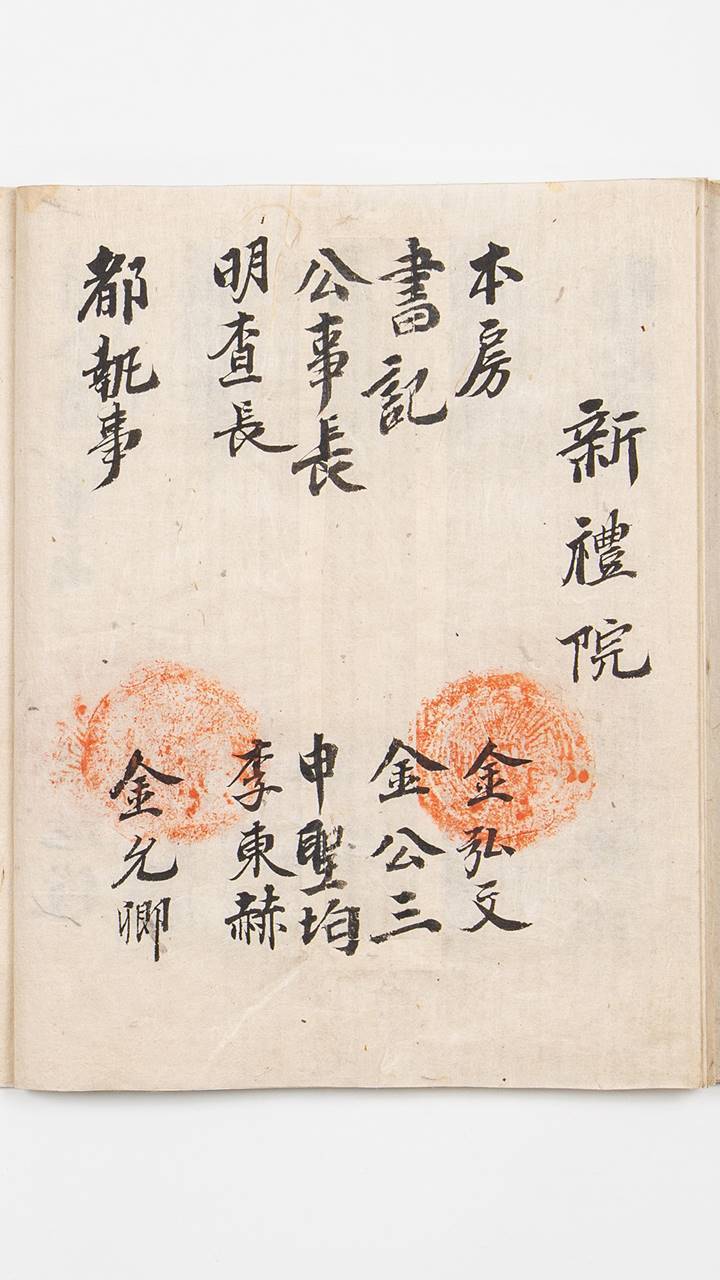 新禮院
本房 金弘文
書記 金公三
公事長 申聖均
明査長 李東赫
都執事 金允卿